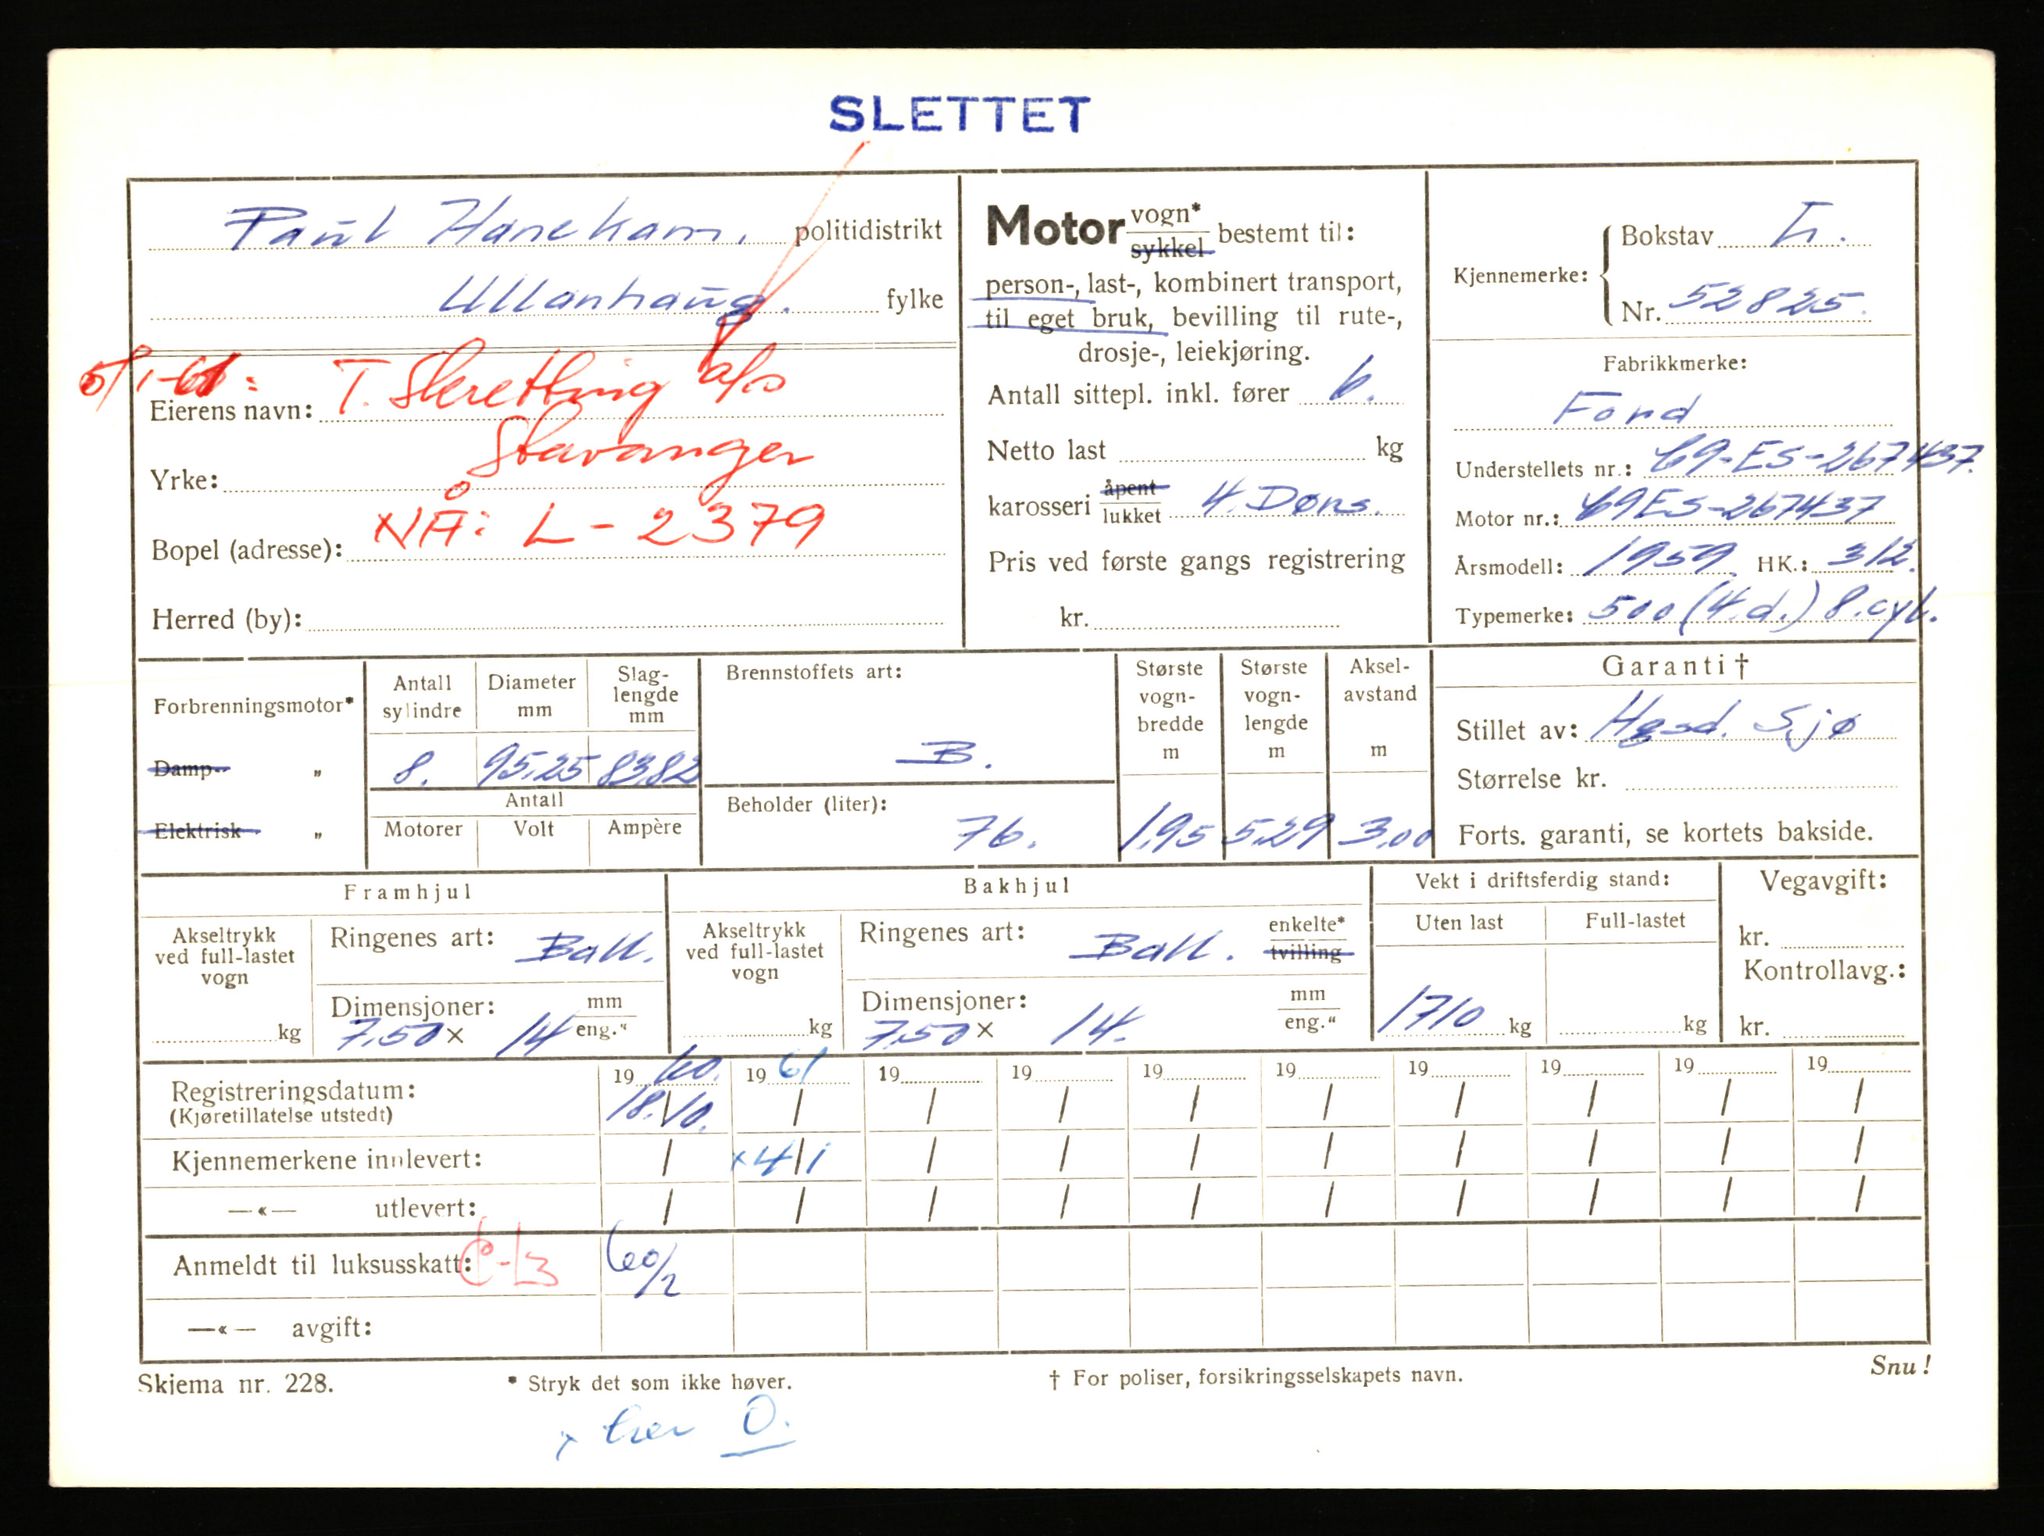 SLETTET
Paul Hanekam. politidistrikt
Ullanhaug. fylke
5/1-61: T. Skretting a/s
Eierens navn:
Stavanger
Yrke:
NÅ: L - 2379
Bopel (adresse):
Herred (by):
Motor vogn* sykkel bestemt til:
person-, last-, kombinert transport,
til eget bruk, bevilling til rute-,
drosje-, leiekjøring.
Antall sittepl. inkl. fører 6.
Netto last kg
karosseri åpent lukket 4. Dørs.
Pris ved første gangs registrering
kr.
Kjennemerke: Bokstav L.
Nr. 52825.
Fabrikkmerke:
Ford
Understellets nr.: C9-ES-267437.
Motor nr.: C9ES-267437
Årsmodell: 1959 HK.: 312.
Typemerke: 500 (4.d.) 8.cyl.
Forbrenningsmotor*
Damp- „
Elektrisk „
Antall sylindre
8.
Diameter mm
95,25
Slag-lengde mm
83,82
Antall
Motorer Volt Ampère
Brennstoffets art:
B.
Beholder (liter):
76.
Største vogn-bredde m
1,95
Største vogn-lengde m
5,29
Aksel-avstand m
3,00
Garanti †
Stillet av: Hgsd. Sjø
Størrelse kr.
Forts. garanti, se kortets bakside.
Framhjul
Akseltrykk ved full-lastet vogn
kg
Ringenes art: Ball.
Dimensjoner: mm
7,50 x 14 eng.“
Bakhjul
Akseltrykk ved full-lastet vogn
kg
Ringenes art: Ball. enkelte* tvilling
Dimensjoner: mm
7,50 x 14. eng.“
Vekt i driftsferdig stand:
Uten last Full-lastet
1710 kg kg
Vegavgift:
kr.
Kontrollavg.:
kr.
19 60. 19 61 19 19 19 19 19 19 19 19
Registreringsdatum: 18./10. / / / / / / / / /
(Kjøretillatelse utstedt)
Kjennemerkene innlevert: / x 4/1 / / / / / / / /
—«— utlevert: / / / / / / / / / /
Anmeldt til luksusskatt: 60/2
—«— avgift:
Skjema nr. 228. * Stryk det som ikke høver. † For poliser, forsikringsselskapets navn. Snu!
x her O.